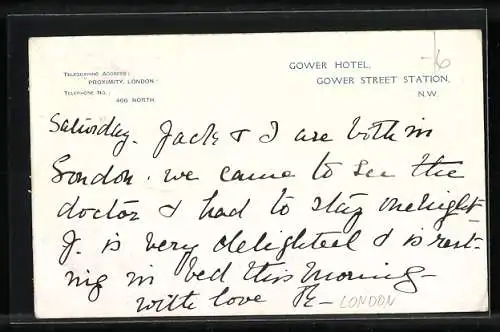 -/6
GOWER HOTEL,
GOWER STREET STATION,
N.W.
TELEGRAPHIC ADDRESS:
"PROXIMITY, LONDON."
TELEPHONE NO.:
400 NORTH.
Saturday. Jack & I are both in
London. we came to see the
doctor & had to stay one night
J. is very delighted & is rest-
ing in bed this morning-
with love
LONDON